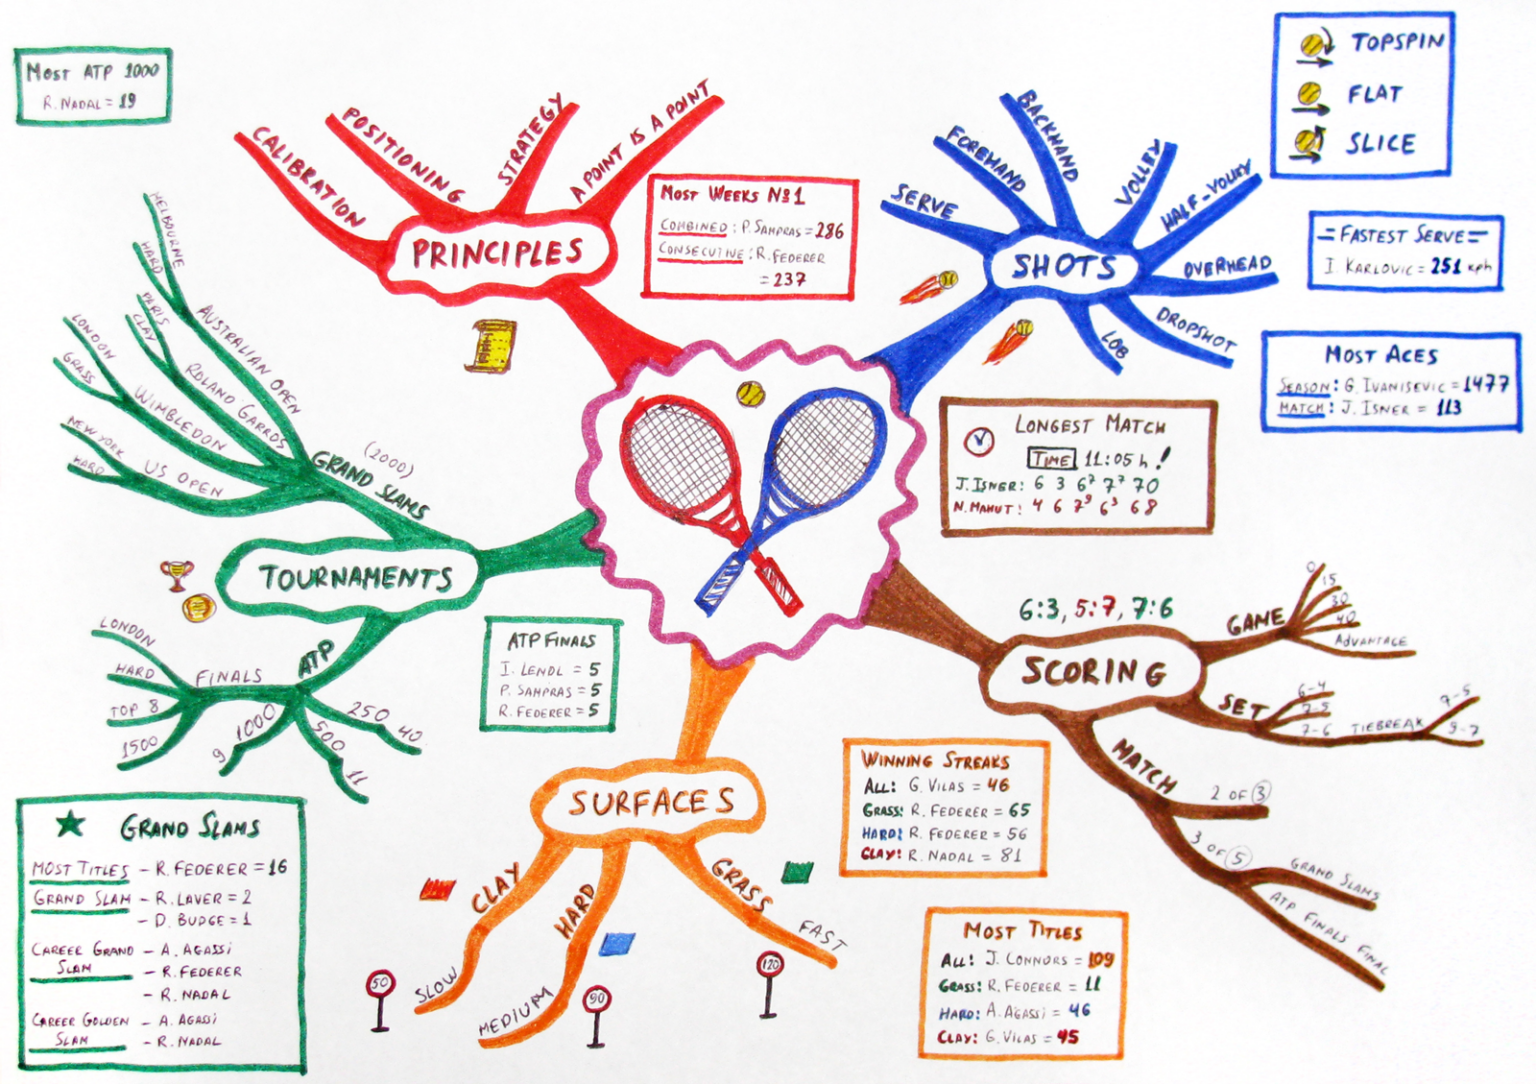 MOST ATP 1000
R. NADAL = 19
PRINCIPLES
CALIBRATION
POSITIONING
STRATEGY
A POINT IS A POINT
MOST WEEKS №1
COMBINED : P. SAMPRAS = 286
CONSECUTIVE : R. FEDERER
= 237
SHOTS
SERVE
FOREHAND
BACKHAND
VOLLEY
HALF-VOLLEY
OVERHEAD
DROPSHOT
LOB
TOPSPIN
FLAT
SLICE
=FASTEST SERVE=
I. KARLOVIC = 251 kph
MOST ACES
SEASON: G. IVANISEVIC = 1477
MATCH: J. ISNER = 113
LONGEST MATCH
TIME 11:05 h!
J. ISNER: 6 3 6⁷ 7⁷ 70
N. MAHUT: 4 6 7⁹ 6³ 68
TOURNAMENTS
GRAND SLAMS
(2000)
AUSTRALIAN OPEN
MELBOURNE
HARD
ROLAND GARROS
PARIS
CLAY
WIMBLEDON
LONDON
GRASS
US OPEN
NEW YORK
HARD
ATP
FINALS
LONDON
HARD
TOP 8
1500
1000
9
500
11
250
40
ATP FINALS
I. LENDL = 5
P. SAMPRAS = 5
R. FEDERER = 5
GRAND SLAMS
MOST TITLES - R. FEDERER = 16
GRAND SLAM - R. LAVER = 2
- D. BUDGE = 1
CAREER GRAND - A. AGASSI
SLAM - R. FEDERER
- R. NADAL
CAREER GOLDEN - A. AGASSI
SLAM - R. NADAL
SURFACES
CLAY
SLOW
50
HARD
MEDIUM
90
GRASS
FAST
120
SCORING
6:3, 5:7, 7:6
GAME
0
15
30
40
ADVANTAGE
SET
6-4
7-5
7-6
TIEBREAK
7-5
9-7
MATCH
2 OF 3
3 OF 5
GRAND SLAMS
ATP FINALS FINAL
WINNING STREAKS
ALL: G. VILAS = 46
GRASS: R. FEDERER = 65
HARD: R. FEDERER = 56
CLAY: R. NADAL = 81
MOST TITLES
ALL: J. CONNORS = 109
GRASS: R. FEDERER = 11
HARD: A. AGASSI = 46
CLAY: G. VILAS = 45